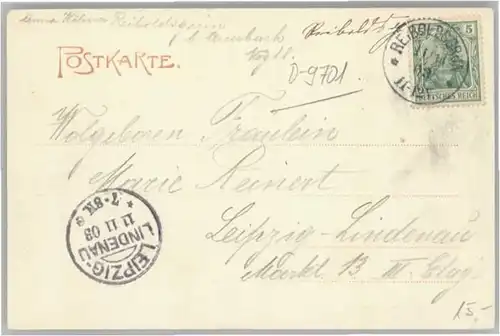 Reiboldsgrün
b Auerbach
Vogtl.
POSTKARTE.
D-9701
REIBOLDSGRÜN
5
DEUTSCHES REICH
Wolgeboren Fräulein
Marie Reinert
Leipzig-Lindenau
Markt 13 III. Etag.
LEIPZIG-
LINDENAU
11 11 08
* 7-8V. *
15.-